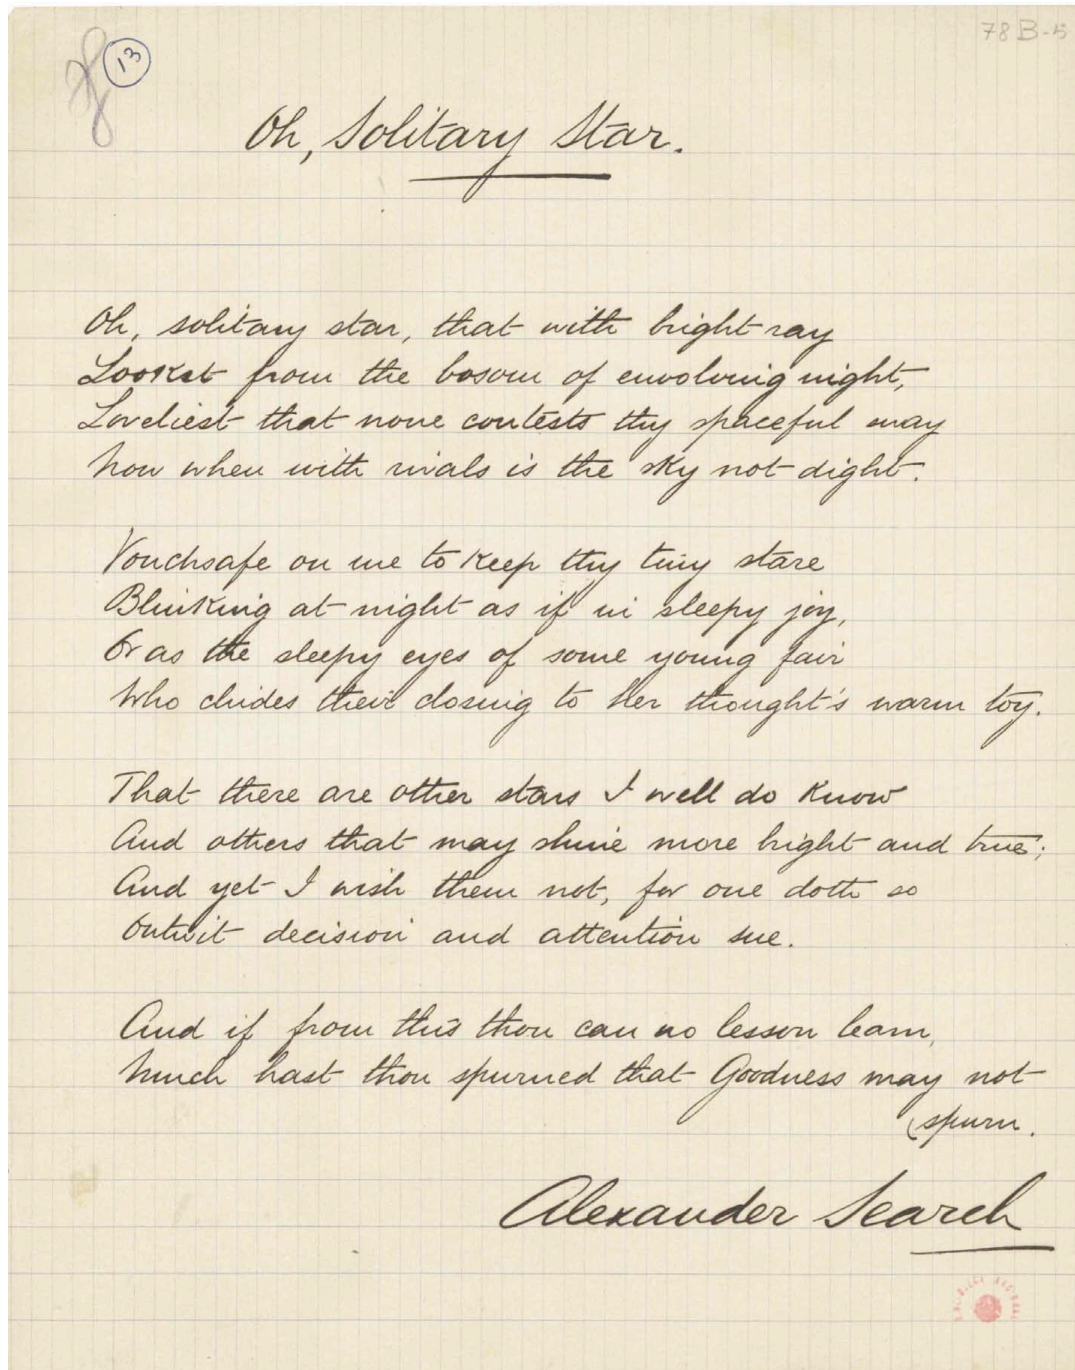 78B-5
13
Oh, Solitary Star.
Oh, solitary star, that with bright ray
Lookst from the bosom of envolving night,
Loveliest that none contests thy spaceful way
Now when with rivals is the sky not dight.
Vouchsafe on me to keep thy tiny stare
Blinking at night as if in sleepy joy,
Or as the sleepy eyes of some young fair
Who chides their closing to her thought's warm toy.
That there are other stars I well do know
And others that may shine more bright and true;
And yet I wish them not, for one doth so
Outwit decision and attention sue.
And if from this thou can no lesson learn,
Much hast thou spurned that Goodness may not
(spurn.
Alexander Search